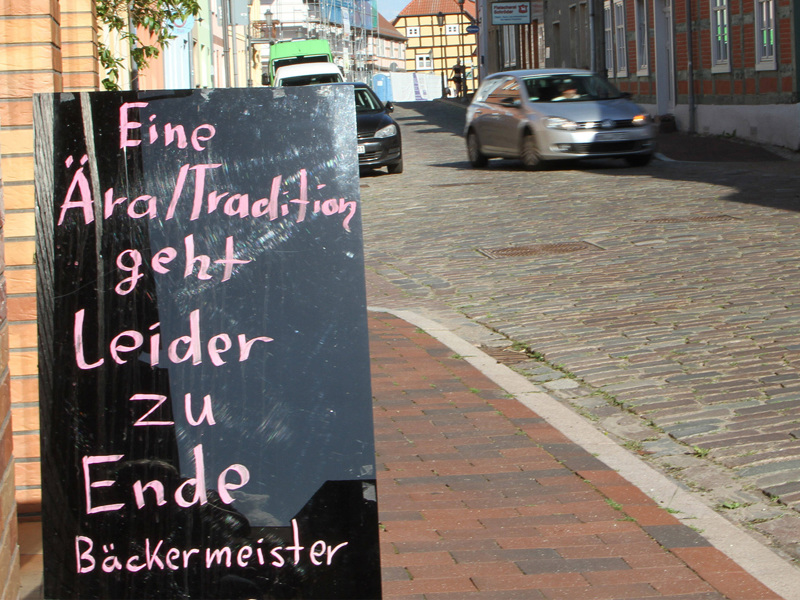 Eine
Ära/Tradition
geht
Leider
zu
Ende
Bäckermeister